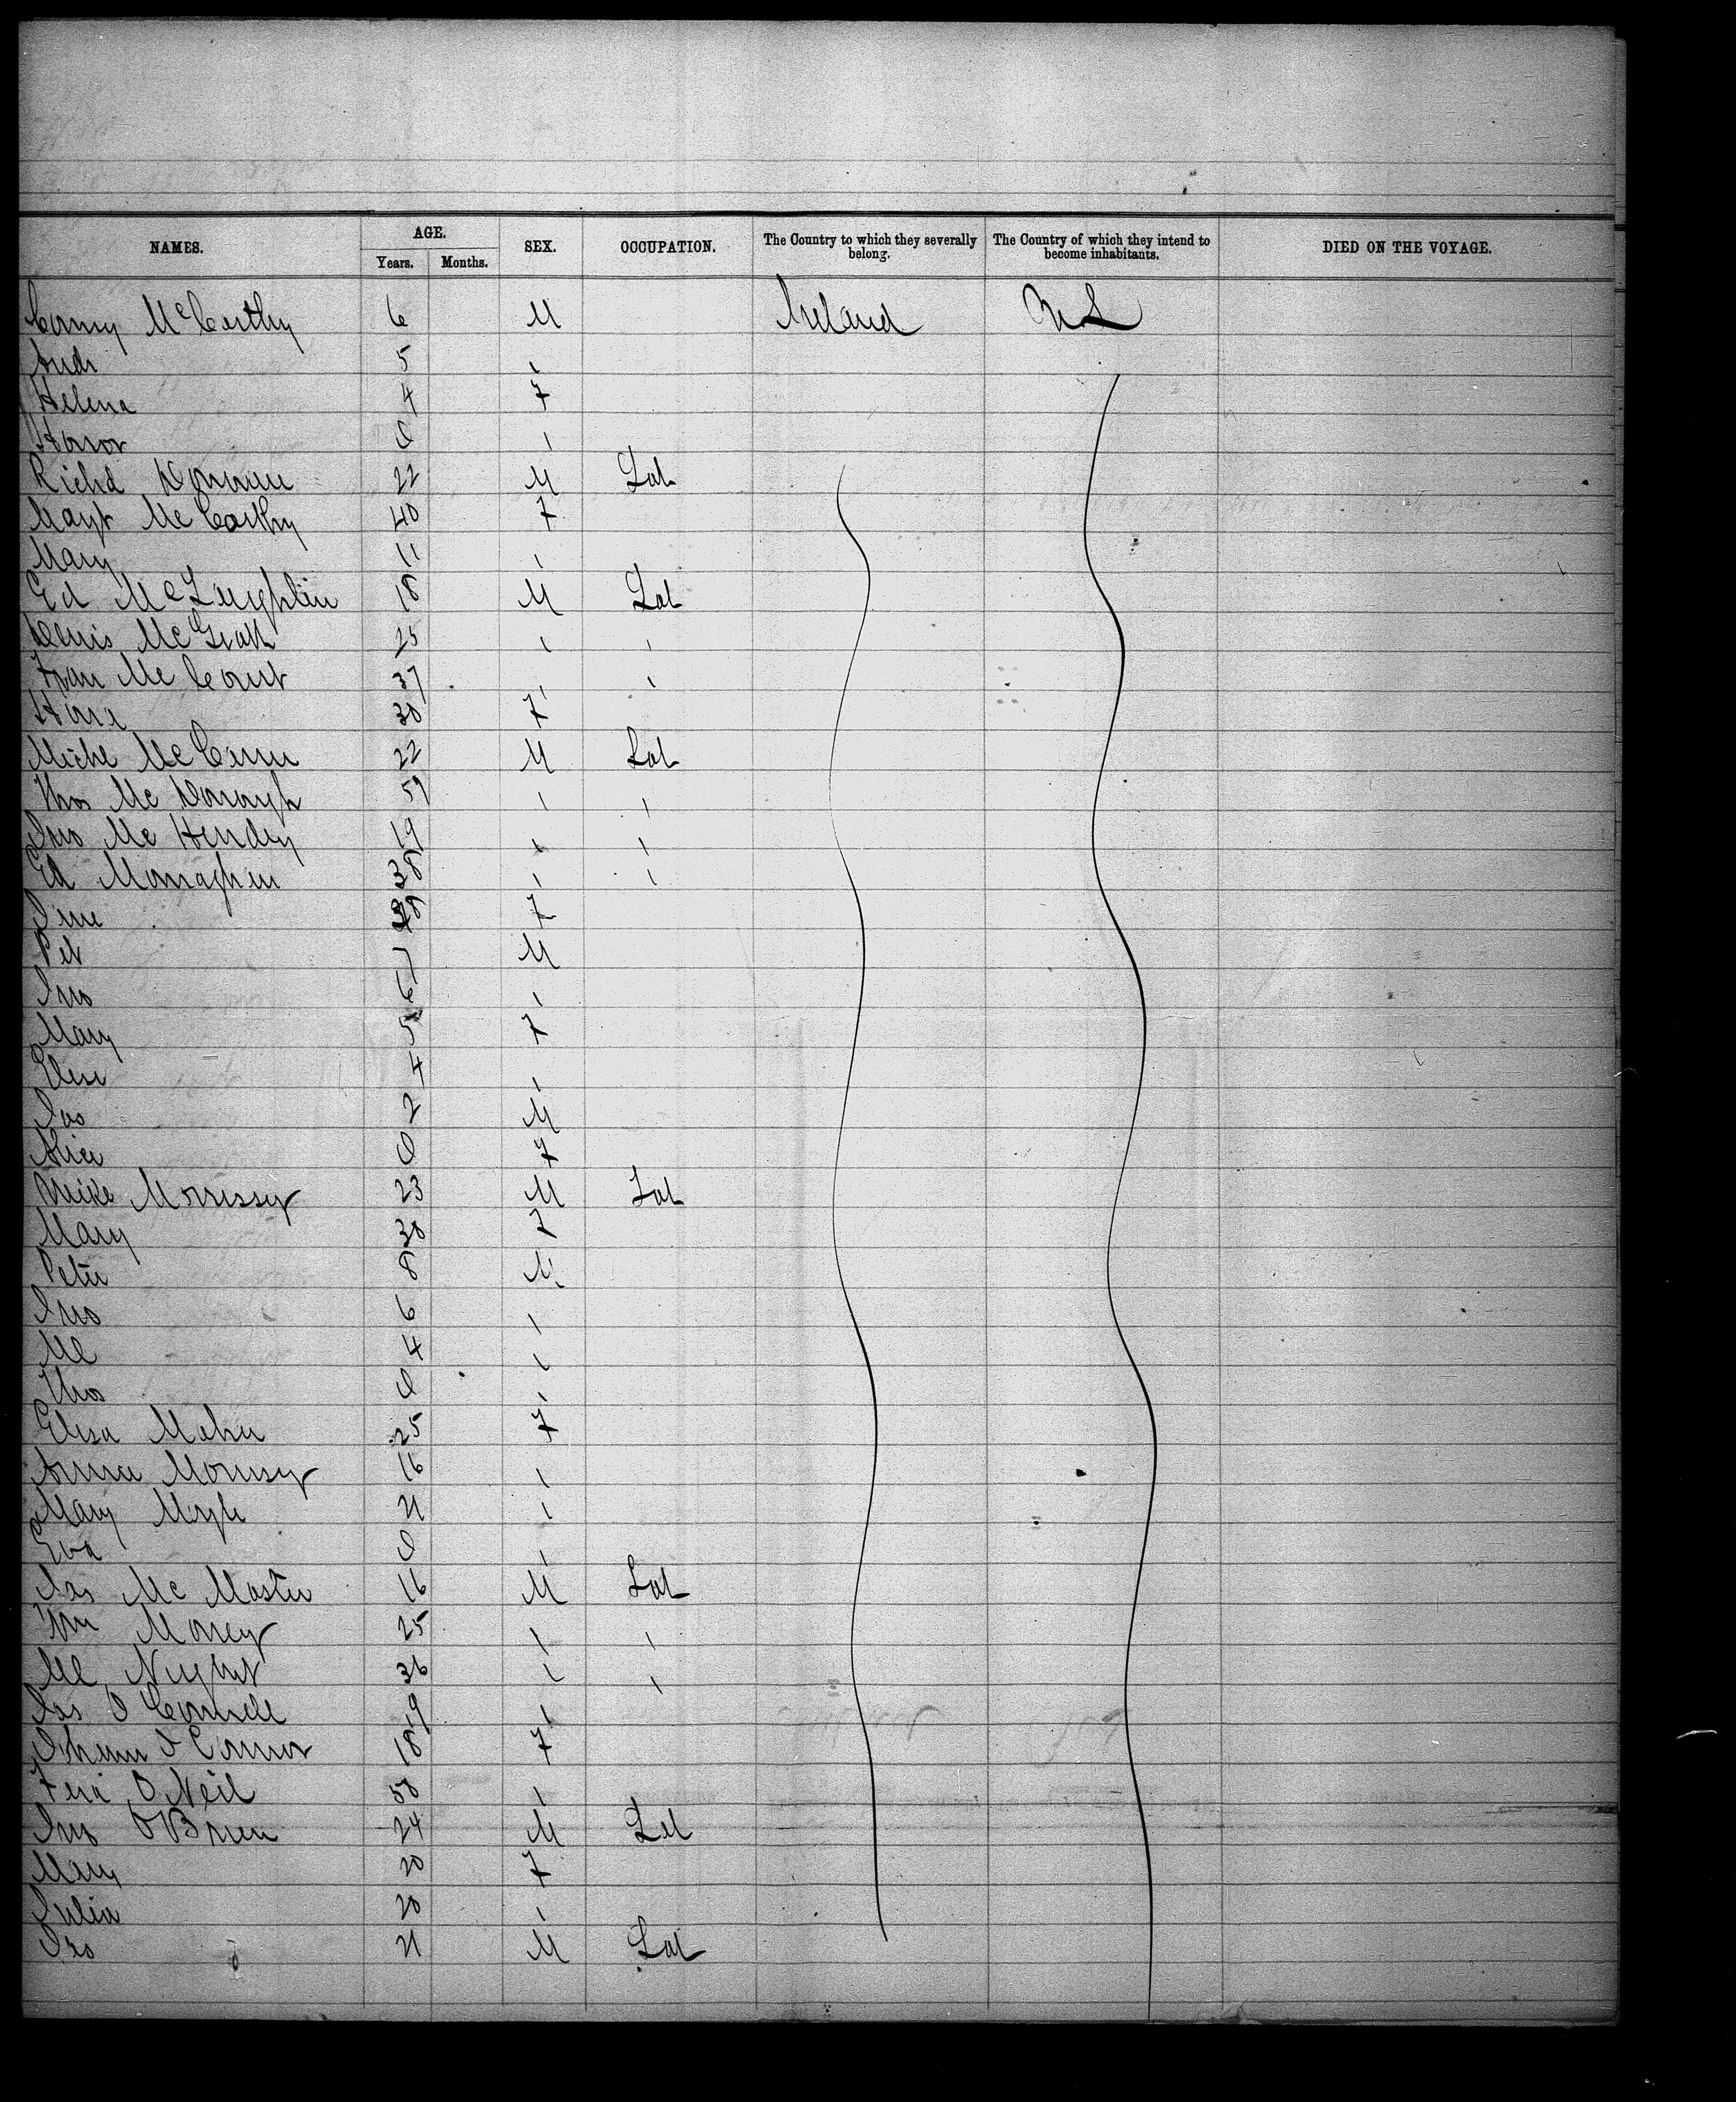 NAMES. AGE. SEX. OCCUPATION. The Country to which they severally belong. The Country of which they intend to become inhabitants. DIED ON THE VOYAGE.
Years. Months.
McCarthy 6 M Ireland US
Andr 5 "
Helena 4 F
Honor 0 "
Richd 22 M Lab
Margt McCarthy 40 F
Mary 11 "
Ed McLaughlin 18 M Lab
Denis McGrath 25 " "
Fran McCourt 37 " "
30 F
Michl 22 M Lab
Thos McDonough 59 " "
Jno Mc 19 " "
Ed Monaghan 38 " "
Jane F
Pat 7 M
Jno 6 "
Mary 5 F
Elisa 4 "
Jas 2 M
Alice 0 F
Mike Morrissey 23 M Lab
Mary 30 F
Peter 8 M
Jno 6 "
Ml 4 "
Thos 0 "
Elisa Maher 25 F
Anna Morrisey 16 "
Mary 21 "
Eva 0 "
Jas McMaster 16 M Lab
Wm Morey 25 " "
Ml Nught 36 " "
Jas O'Connell 19 "
Johann O'Connor 18 F
O'Neil 50 "
Jno O'Brien 24 M Lab
Mary 20 F
Julia 20 "
Jno 21 M Lab